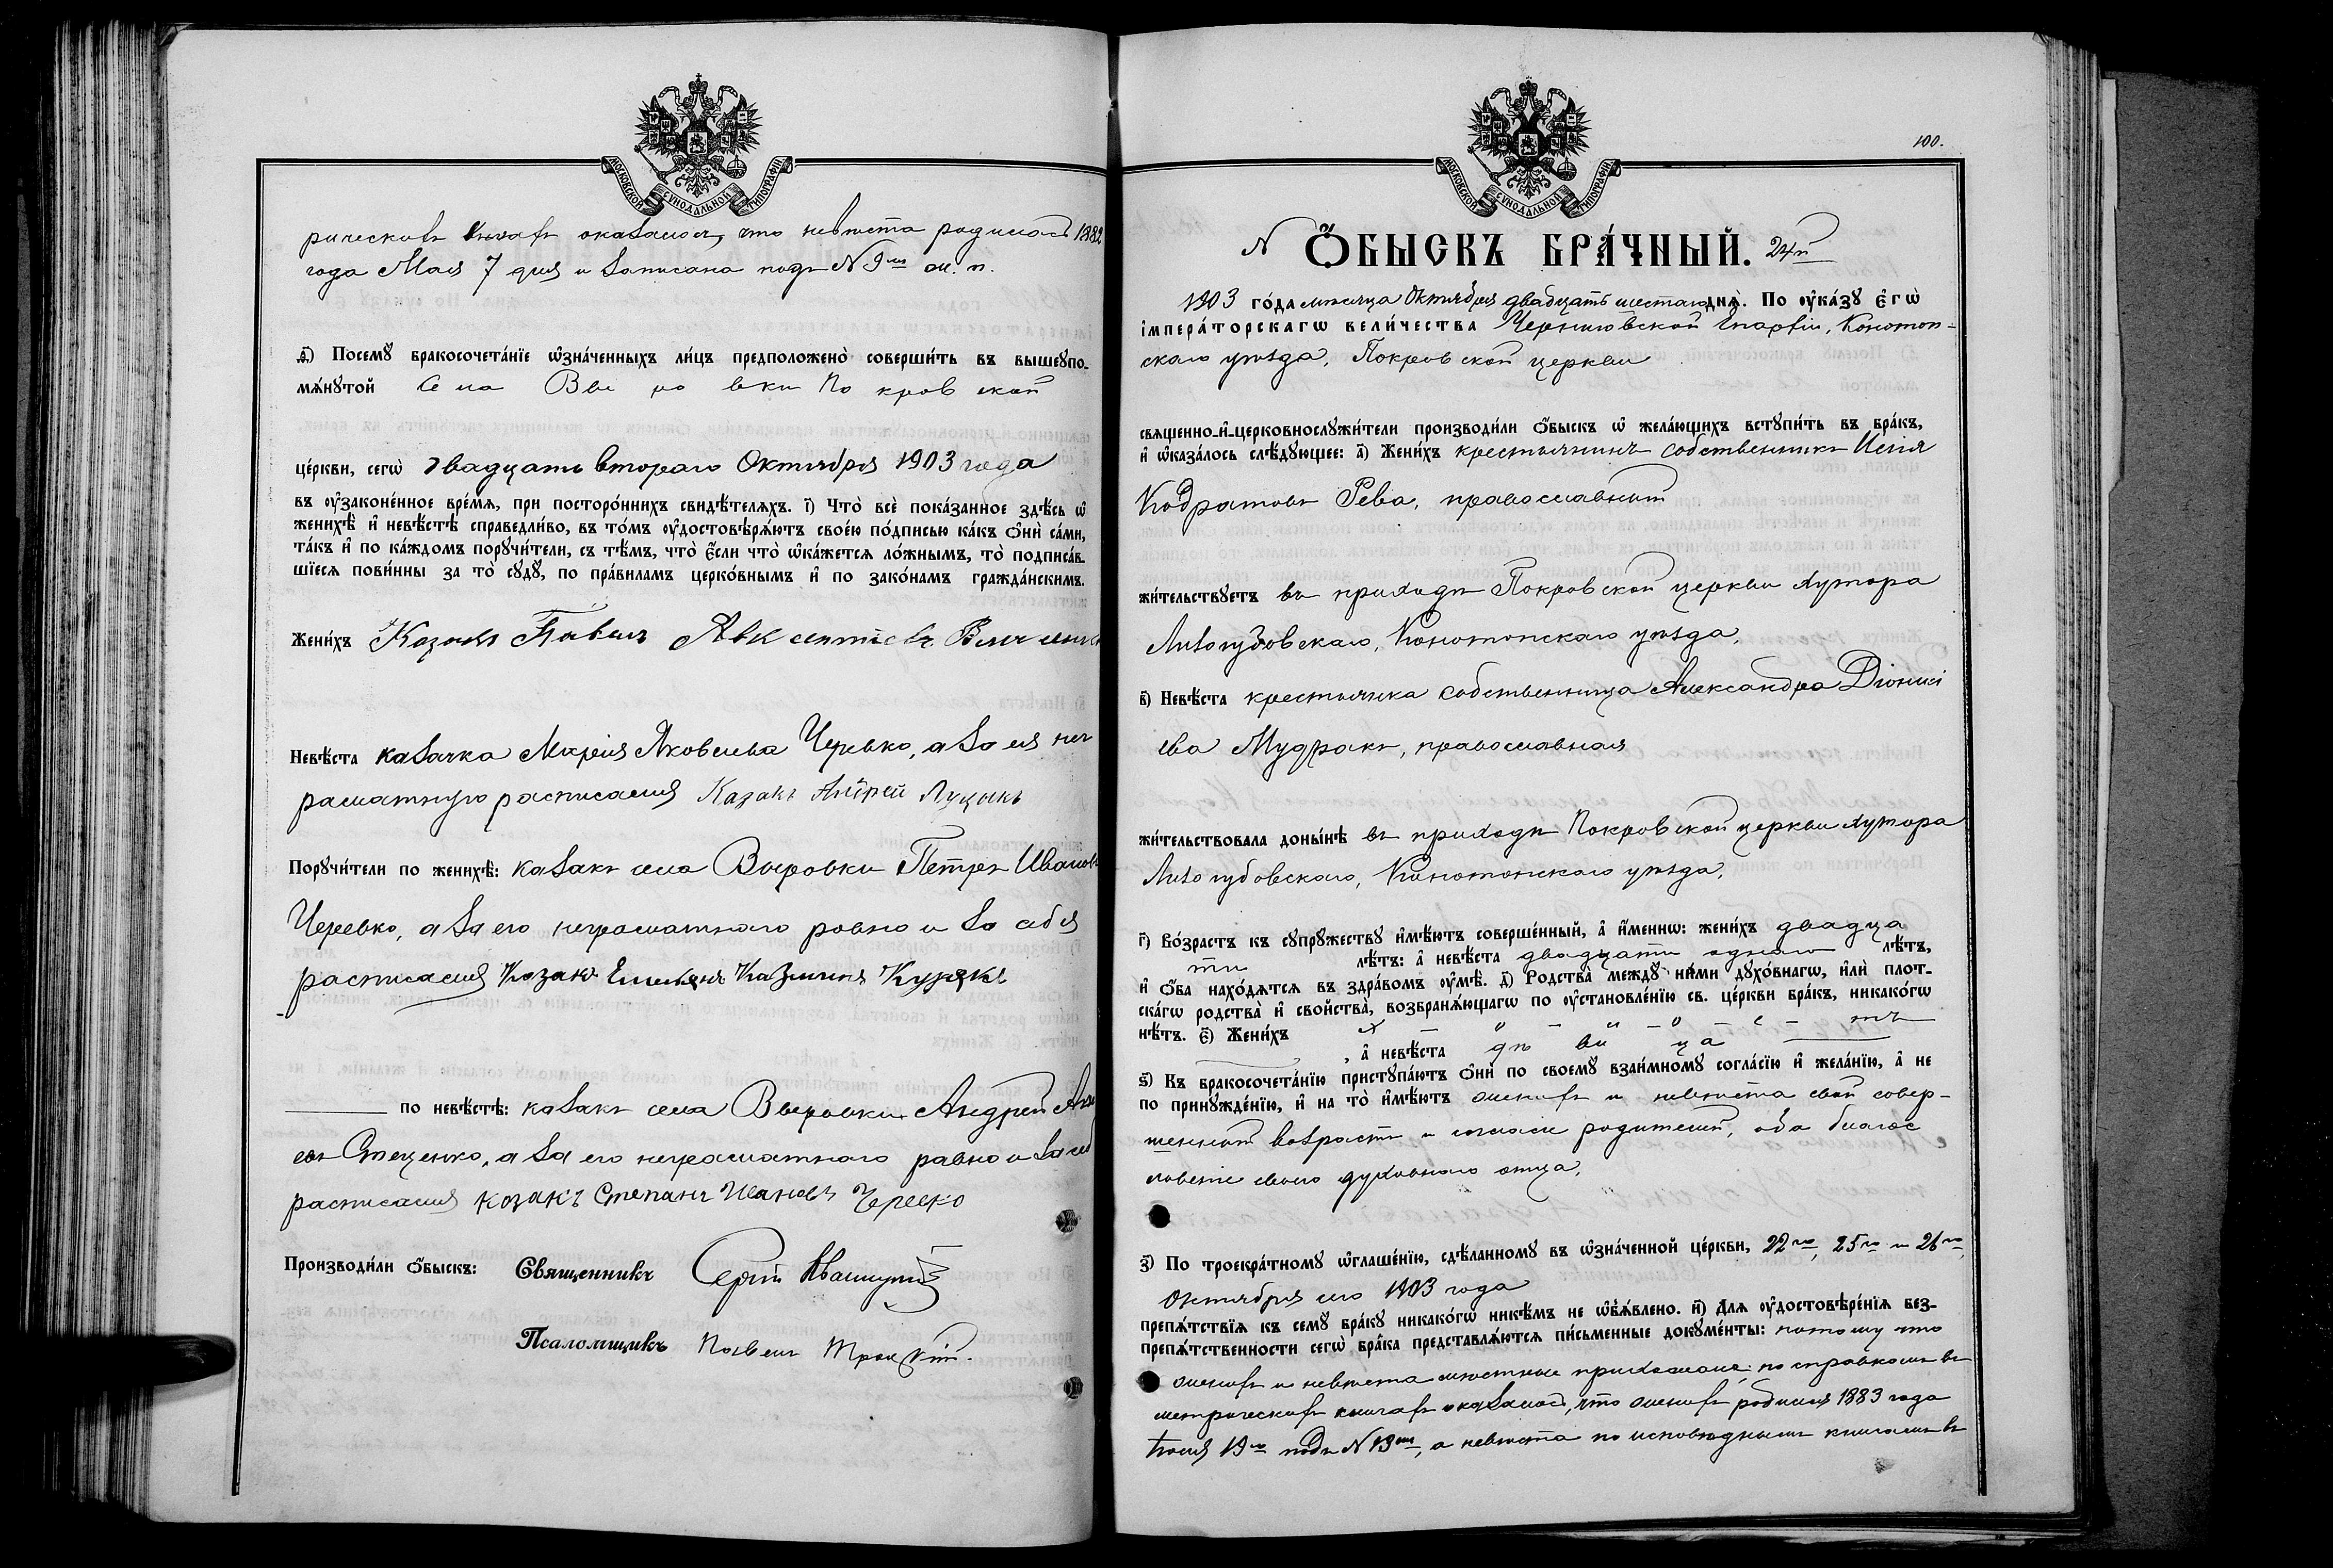 МОСКОВСКОЙ СѴНОДАЛЬНОЙ ТИПОГРАФІИ
рическихъ книгахъ оказалось, что невѣста родилась 1882
года Мая 7 дня и записана подъ № 9мъ ж. п.
д҃і) Посемꙋ бракосочета́нїе ѡ҆зна́ченныхъ ли́цъ предположено̀ соверши́ть въ вышеꙋпо-
мѧ́нꙋтой села Вы ро вки По кров ской
це́ркви, сегѡ̀ двадцать второго Октября 1903 года
въ ᲂу҆законе́нное вре́мѧ, при посторо́ннихъ свидѣ́телѧхъ. і҃) Что̀ всѐ пока́занное здѣ́сь ѡ҆
женихѣ̀ и҆ невѣ́стѣ справедли́во, въ то́мъ ᲂу҆достовѣрѧ́ютъ свое́ю по́дписью ка́къ ѻ҆нѝ са́ми,
та́къ и҆ по ка́ждомъ порꙋчи́тели, съ тѣ́мъ, что̀ є҆́сли что̀ ѡ҆ка́жетсѧ ло́жнымъ, то̀ подписа́в-
шїесѧ пови́нны за то̀ сꙋдꙋ̀, по пра́виламъ церко́внымъ и҆ по зако́намъ гражда́нскимъ.
Жени́хъ Козакъ Павелъ
Невѣ́ста казачка Марія Яковлева Черевко, а за ея нег
рамотную расписался Казакъ Андрей Луцыкъ
Порꙋчи́тели по женихѣ̀: казакъ села Выровки Петръ Иванов
Черевко, а за его неграмотного ровно и за себя
расписался Козакъ Емельянъ Казминъ Курякъ
по невѣ́стѣ: казакъ села Выровки Андрей
евъ Стеценко, а за его неграмотного равно и за себ
расписался козакъ Степанъ Ивановъ Черевко
Производи́ли ѻ҆́быскъ: Священникъ Сергій
Псаломщикъ Павелъ
100.
МОСКОВСКОЙ СѴНОДАЛЬНОЙ ТИПОГРАФІИ
№ Ѻ҆БЫСКЪ БРА́ЧНЫЙ. 24й
1903 го́да мѣсяца Октября двадцать шестаго днѧ̀. По ᲂу҆ка́зꙋ є҆гѡ̀
і҆мпера́торскагѡ вели́чества Черниговской Епархіи, Конотоп-
скаго уѣзда, Покровской церкви
свѧщенно-и҆-церковнослꙋжи́тели производи́ли ѻ҆́быскъ ѡ҆ жела́ющихъ встꙋпи́ть въ бра́къ,
и҆ ѡ҆каза́лось слѣ́дꙋющее: а҃) Жени́хъ крестьянинъ собственникъ Исаія
Кодратовъ Рева, православный
жи́тельствꙋетъ въ приходѣ Покровской церкви хутора
Лизогубовскаго, Конотопскаго уѣзда,
в҃) Невѣ́ста крестьянка собственница Александра Діониcі
ева Мудракъ, православная
жи́тельствовала доны́нѣ въ приходѣ Покровской церкви хутора
Лизогубовскаго, Конотопскаго уѣзда,
г҃) Во́зрастъ къ сꙋпрꙋ́жествꙋ и҆мѣ́ютъ соверше́нный, а҆ и҆́меннѡ: жени́хъ двадца
ти лѣ́тъ: а҆ невѣ́ста двадцати одного лѣ́тъ,
и҆ ѻ҆́ба нахо́дѧтсѧ въ здра́вомъ ᲂу҆мѣ̀. д҃) Родства̀ междꙋ̀ ни́ми дꙋхо́внагѡ, и҆лѝ плот-
ска́гѡ родства̀ и҆ свойства̀, возбранѧ́ющагѡ по ᲂу҆становле́нїю св. це́ркви бра́къ, никако́гѡ
нѣ́тъ. є҃) Жени́хъ х - о - л - о - с - тъ
, а҆ невѣ́ста дѣ ви ца
ѕ҃) Къ бракосочета́нїю пристꙋпа́ютъ ѻ҆нѝ по своемꙋ̀ взаи́мномꙋ согла́сїю и҆ жела́нїю, а҆ не
по принꙋжде́нїю, и҆ на то̀ и҆мѣ́ютъ женихъ и невѣста свой совер-
шенный возрастъ и согласіе родителей, оба благос
ловеніе своего духовного отца,
з҃) По троекра́тномꙋ ѡ҆глаше́нїю, сдѣ́ланномꙋ въ ѡ҆зна́ченной це́ркви, 22го, 25го и 26го,
Октября сего 1903 года
препѧ́тствїѧ къ семꙋ̀ бра́кꙋ никако́гѡ никѣ́мъ не ѡ҆б̾ѧ́влено. и҃) Длѧ ᲂу҆достовѣре́нїѧ без-
препѧ́тственности сегѡ̀ бра́ка представлѧ́ютсѧ пи́сьменные докꙋме́нты: потому что
женихъ и невѣста мѣстные прихожане; по справкамъ въ
метрическихъ книгахъ оказалось, что женихъ родился 1883 года
Іюля 19го подъ № 13мъ, а невѣста по исповѣднымъ книгамъ въ